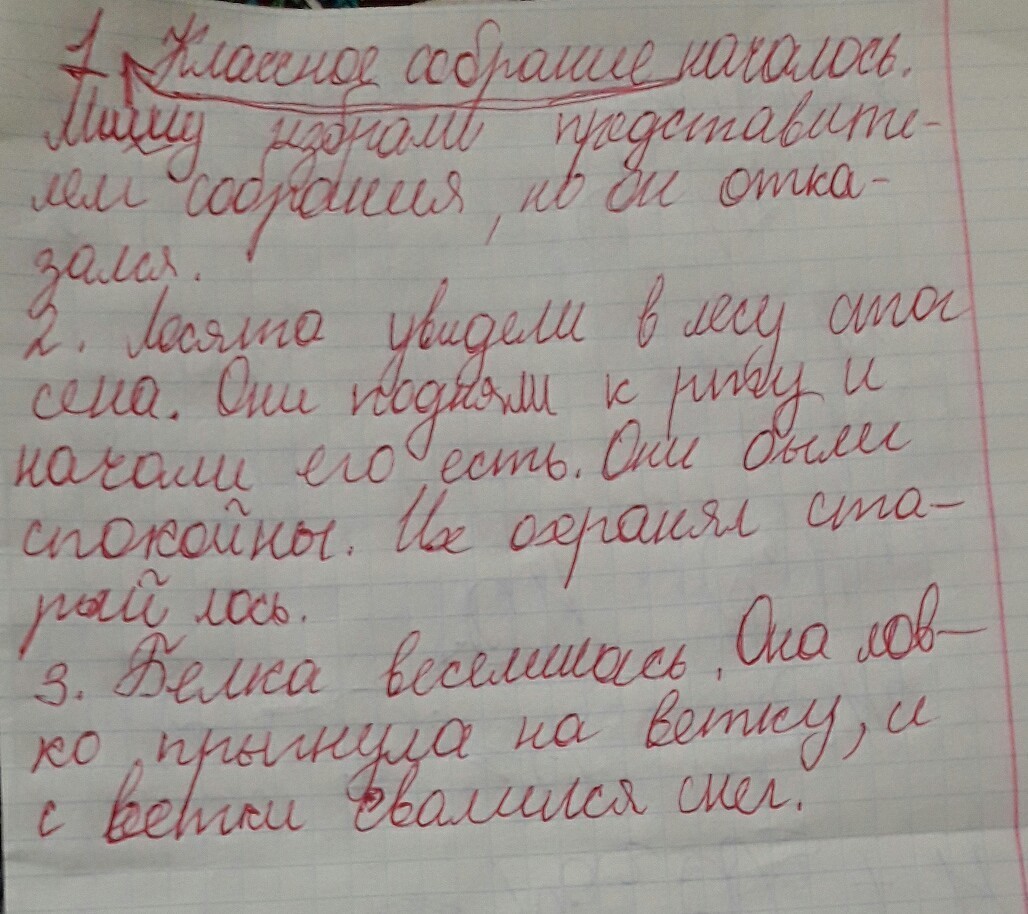 1. Классное собрание началось.
Мишу избрали представите-
лем собрания, но он отка-
зался.
2. Лосята увидели в лесу стог
сена. Они подняли к и
начали его есть. Они были
спокойны. Их охранял ста-
рый лось.
3. Белка веселилась. Она лов-
ко прыгнула на ветку, и
с ветки свалился снег.